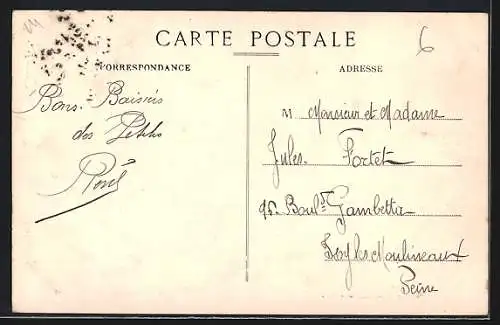 CARTE POSTALE
6
CORRESPONDANCE
ADRESSE
Bons Baisers
des Petits
Monsieur et Madame
Jules Fortet
95 Bould Gambetta
Issy les Moulineaux
Seine